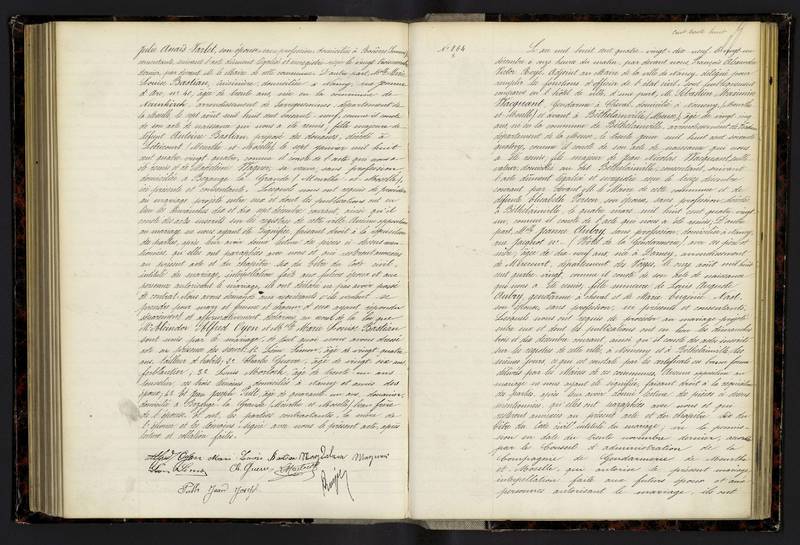 Julie Anaïs Varlet, son épouse, sans profession, domiciliés à
consentants, suivant l'acte dûment légalisé et enregistré reçu le vingt
dernier, par devant M. le Maire de cette commune. D'autre part, Mlle Marie
Louise Bastian, cuisinière, domiciliée à Nancy, rue Jeanne
d'Arc, no 41, âgée de trente ans, née en la commune de
arrondissement de Sarreguemines, département de
la Moselle, le sept août mil huit cent soixante neuf, comme il conste
de son acte de naissance qui nous a été remis, fille majeure de
défunt Antoine Bastian, préposé des douanes, décédé à
(Meurthe et Moselle), le sept janvier mil huit
cent quatre vingt quatre, comme il conste de l'acte qui nous a
été remis et de Wagner, sa veuve, sans profession,
domiciliée à la Grande (Meurthe et Moselle),
ici présente et consentante. Lesquels nous ont requis de procéder
au mariage projeté entre eux et dont les publications ont eu
lieu les dimanches dix et dix sept décembre courant, ainsi qu'il
conste des actes inscrits sur les registres de cette ville. Aucune opposition
au mariage ne nous ayant été signifiée, faisant droit à la réquisition
des parties, après leur avoir donné lecture des pièces ci dessus men-
tionnées, qu'elles ont paraphées avec nous et qui resteront annexées
au présent acte et du chapitre six du titre du Code civil
intitulé du mariage, interpellation faite aux futurs époux et aux
personnes autorisant le mariage, ils ont déclaré ne pas avoir passé
de contrat. Nous avons demandé aux contractants s'ils veulent se
prendre pour mary et femme et chacun d'eux ayant répondu
séparément et affirmativement, déclarons, au nom de la loi que
M. Alfred Oyen et Mlle Marie Louise Bastian
sont unis par le mariage, de tout quoi nous avons dressé
acte en présence des sieurs 1° Louis Simon, âgé de vingt quatre
ans, tailleur d'habits; 2° Charles Guerre, âgé de vingt six ans,
ferblantier; 3° Louis Morloch, âgé de trente un ans,
ces trois derniers domiciliés à Nancy et amis des
époux; 4° Et Jean Joseph âgé de quarante un ans, douanier,
domicilié à la Grande (Meurthe et Moselle), beau frère
de l'épouse. Et ont, les parties contractantes, la mère de
l'épouse et les témoins signé avec nous le présent acte, après
lecture et collation faite.
Alfred Oyen Marie Louise Bastian Wagner
Louis Simon Ch. Guerre
Jean Joseph
No 864
L'an mil huit cent quatre-vingt-dix-neuf, le vingt six
décembre à onze heures du matin, par devant nous François Alexandre
Victor Adjoint au Maire de la ville de Nancy, délégué pour
remplir les fonctions d'officier de l'état civil, sont publiquement
comparus en l'hôtel de ville, d'une part, M. Sébastien Maxime
Wacquant, Gendarme à cheval, domicilié à Nomeny (Meurthe
et Moselle) et avant à Béthelainville (Meuse), âgé de vingt cinq
ans, né en la commune de Béthelainville, arrondissement de Verdun,
département de la Meuse, le mil huit cent soixante
quatorze, comme il conste de son acte de naissance qui nous
a été remis, fils majeur de Jean Nicolas Wacquant,
domicilié au dit Béthelainville, consentant, suivant
l'acte dûment légalisé et enregistré reçu le treize décembre
courant par devant M. le Maire de cette commune et de
défunte Elisabeth son épouse, sans profession, décédée
à Béthelainville le quatre mars mil huit cent quatre vingt
comme il conste de l'acte qui nous a été remis. D'autre
part, Mlle Jeanne Aubry, sans profession, domiciliée à Nancy,
rue Jacquot no (Hôtel de la Gendarmerie) avec ses père et
mère, âgée de dix neuf ans, née à Darney, arrondissement
de Mirecourt, département des Vosges, le onze août mil huit
cent quatre vingt, comme il conste de son acte de naissance
qui nous a été remis, fille mineure de Louis Auguste
Aubry, gendarme à cheval et de Marie Eugénie Noël,
son épouse, sans profession, ici présents et consentants.
Lesquels nous ont requis de procéder au mariage projeté
entre eux et dont les publications ont eu lieu les dimanches
trois et dix décembre courant, ainsi qu'il conste des actes inscrits
sur les registres de cette ville, à Nomeny et à Béthelainville les
mêmes jours, ce qui est constaté par les certificats en bonne forme
délivrés par les Maires de ces communes. Aucune opposition au
mariage ne nous ayant été signifiée, faisant droit à la réquisition
des parties, après leur avoir donné lecture des pièces ci dessus
mentionnées, qu'elles ont paraphées avec nous et qui
resteront annexées au présent acte et du chapitre six du
titre du Code civil intitulé du mariage; vu la permis-
sion en date du trente novembre dernier, accordée
par le Conseil d'administration de la
Compagnie de Gendarmerie de Meurthe
et Moselle, qui autorise le présent mariage,
interpellation faite aux futurs époux et aux
personnes autorisant le mariage, ils ont